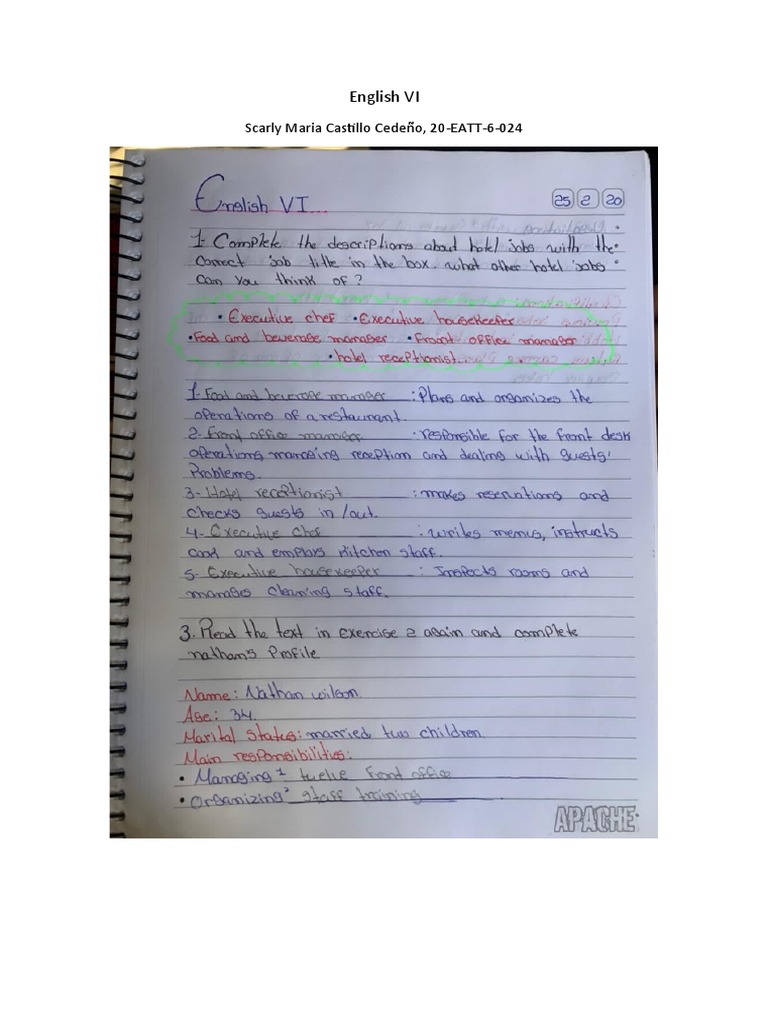 English VI
Scarly Maria Castillo Cedeño, 20-EATT-6-024
English VI...
25 2 20
1- Complete the descriptions about hotel jobs with the
correct job title in the box. what other hotel jobs
can you think of?
• Executive chef • Executive housekeeper
• Food and beverage manager • Front office manager
• hotel receptionist.
1- Food and beverage manager : Plans and organizes the
operations of a restaurant.
2- Front office manager : responsible for the front desk
operations managing reception and dealing with guests'
Problems.
3- Hotel receptionist : makes reservations and
checks guests in /out.
4- Executive chef : writes menus, instructs
cook and employs Kitchen staff.
5- Executive housekeeper : Inspects rooms and
manages cleaning staff.
3. Read the text in exercise 2 again and complete
nathan's Profile
Name: Nathan wilson.
Age: 34.
Marital status: married, two children.
Main responsibilities:
• Managing 1 twelve front office
• Organizing 2 staff training
APACHE